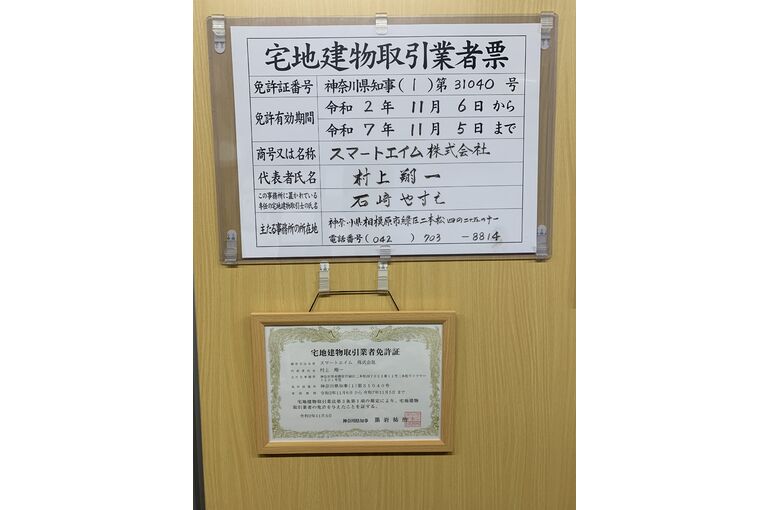 宅地建物取引業者票
免許証番号 神奈川県知事(1)第31040号
免許有効期間 令和2年11月6日から
令和7年11月5日まで
商号又は名称 スマートエイム株式会社
代表者氏名 村上翔一
この事務所に置かれている専任の宅地建物取引士の氏名 石崎やすえ
主たる事務所の所在地 神奈川県相模原市緑区二本松四の二十五の十一
電話番号(042)703-8814
宅地建物取引業者免許証
商号又は名称 スマートエイム 株式会社
代表者氏名 村上 翔一
免許証番号 神奈川県知事(1)第31040号
有効期間 令和2年11月6日から 令和7年11月5日まで
宅地建物取引業法第3条第1項の規定により、宅地建物
取引業者の免許を与えたことを証する。
令和2年11月6日
神奈川県知事 黒岩祐治